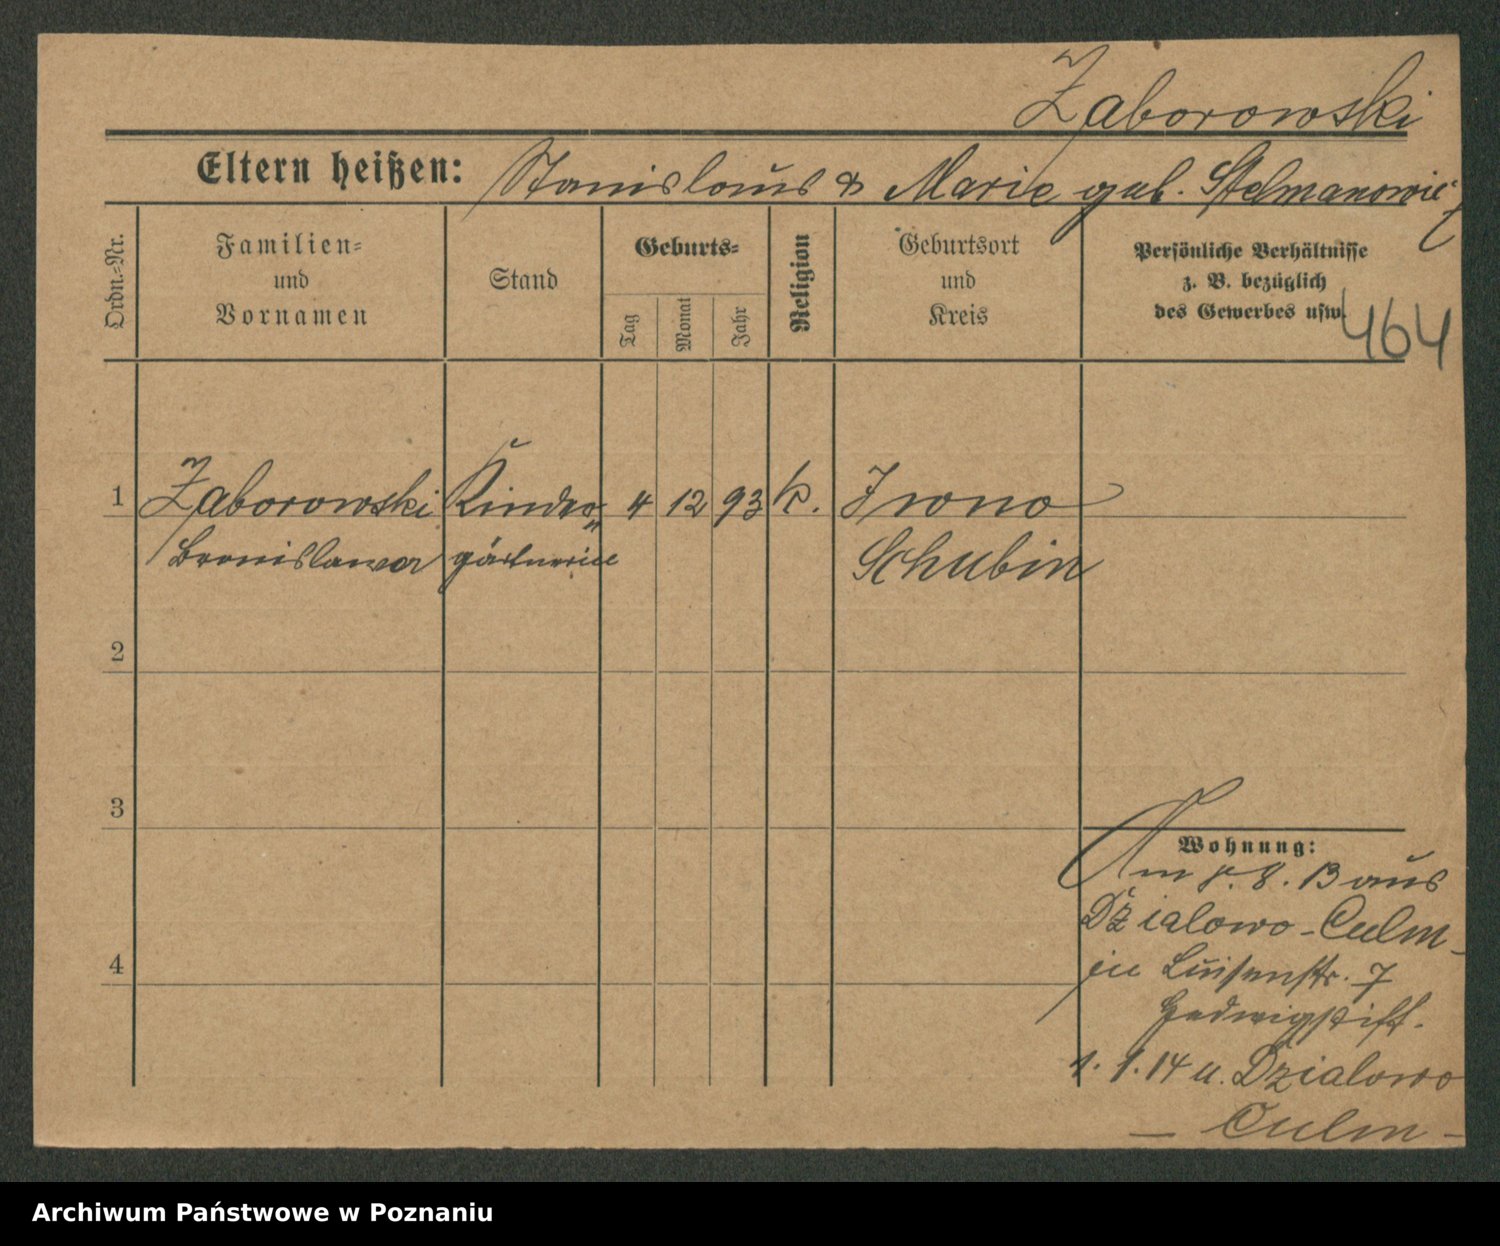 Zaborowski
Eltern heißen: Stanislaus & Marie geb. Stelmanowicz
Ordn.-Nr.
Familien-
und
Vornamen
Stand
Geburts-
Tag
Monat
Jahr
Religion
Geburtsort
und
Kreis
Persönliche Verhältnisse
z. B. bezüglich
des Gewerbes usw.
464
1 Zaborowski Kinder- 4 12 93 k. Iwno
Bronislawa gärtnerin Schubin
2
3
4
Wohnung:
Am 8. 13 aus
Dzialowo-Culm-
in Luisenstr. 7
Hedwigstift.
1. 1. 14 n. Dzialowo
- Culm -
Archiwum Państwowe w Poznaniu